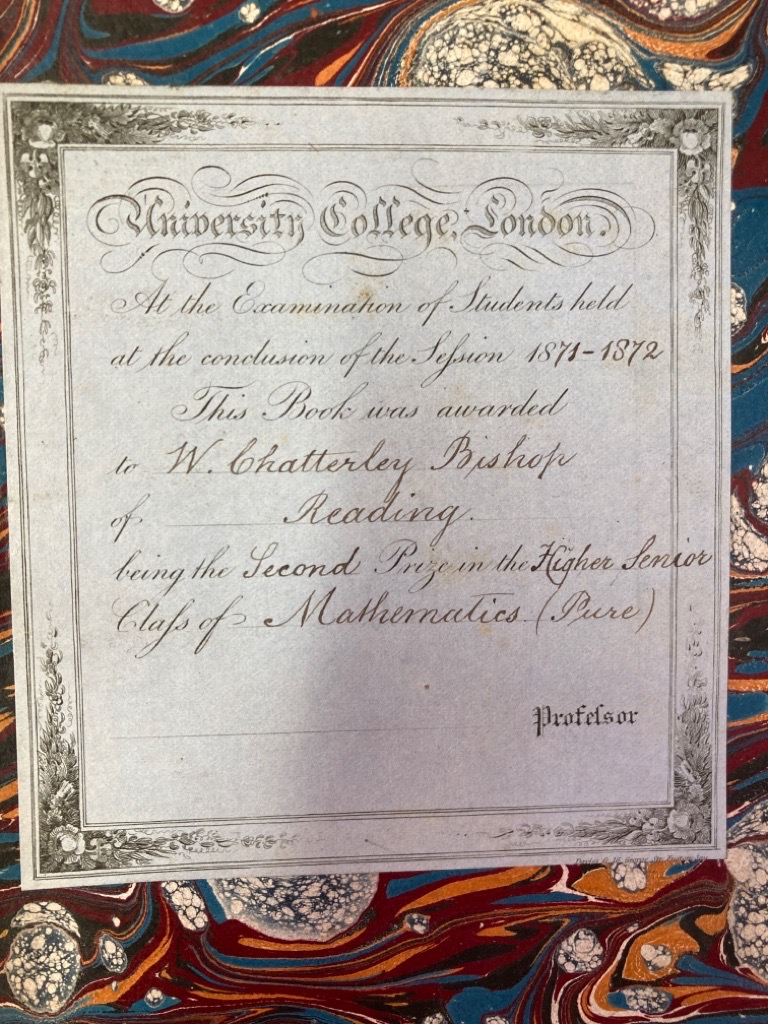 University College, London.
At the Examination of Students held
at the conclusion of the Seſsion 1871-1872
This Book was awarded
to W. Chatterley Bishop
of Reading.
being the Second Prize in the Higher Senior
Claſs of Mathematics (Pure)
Profeſsor